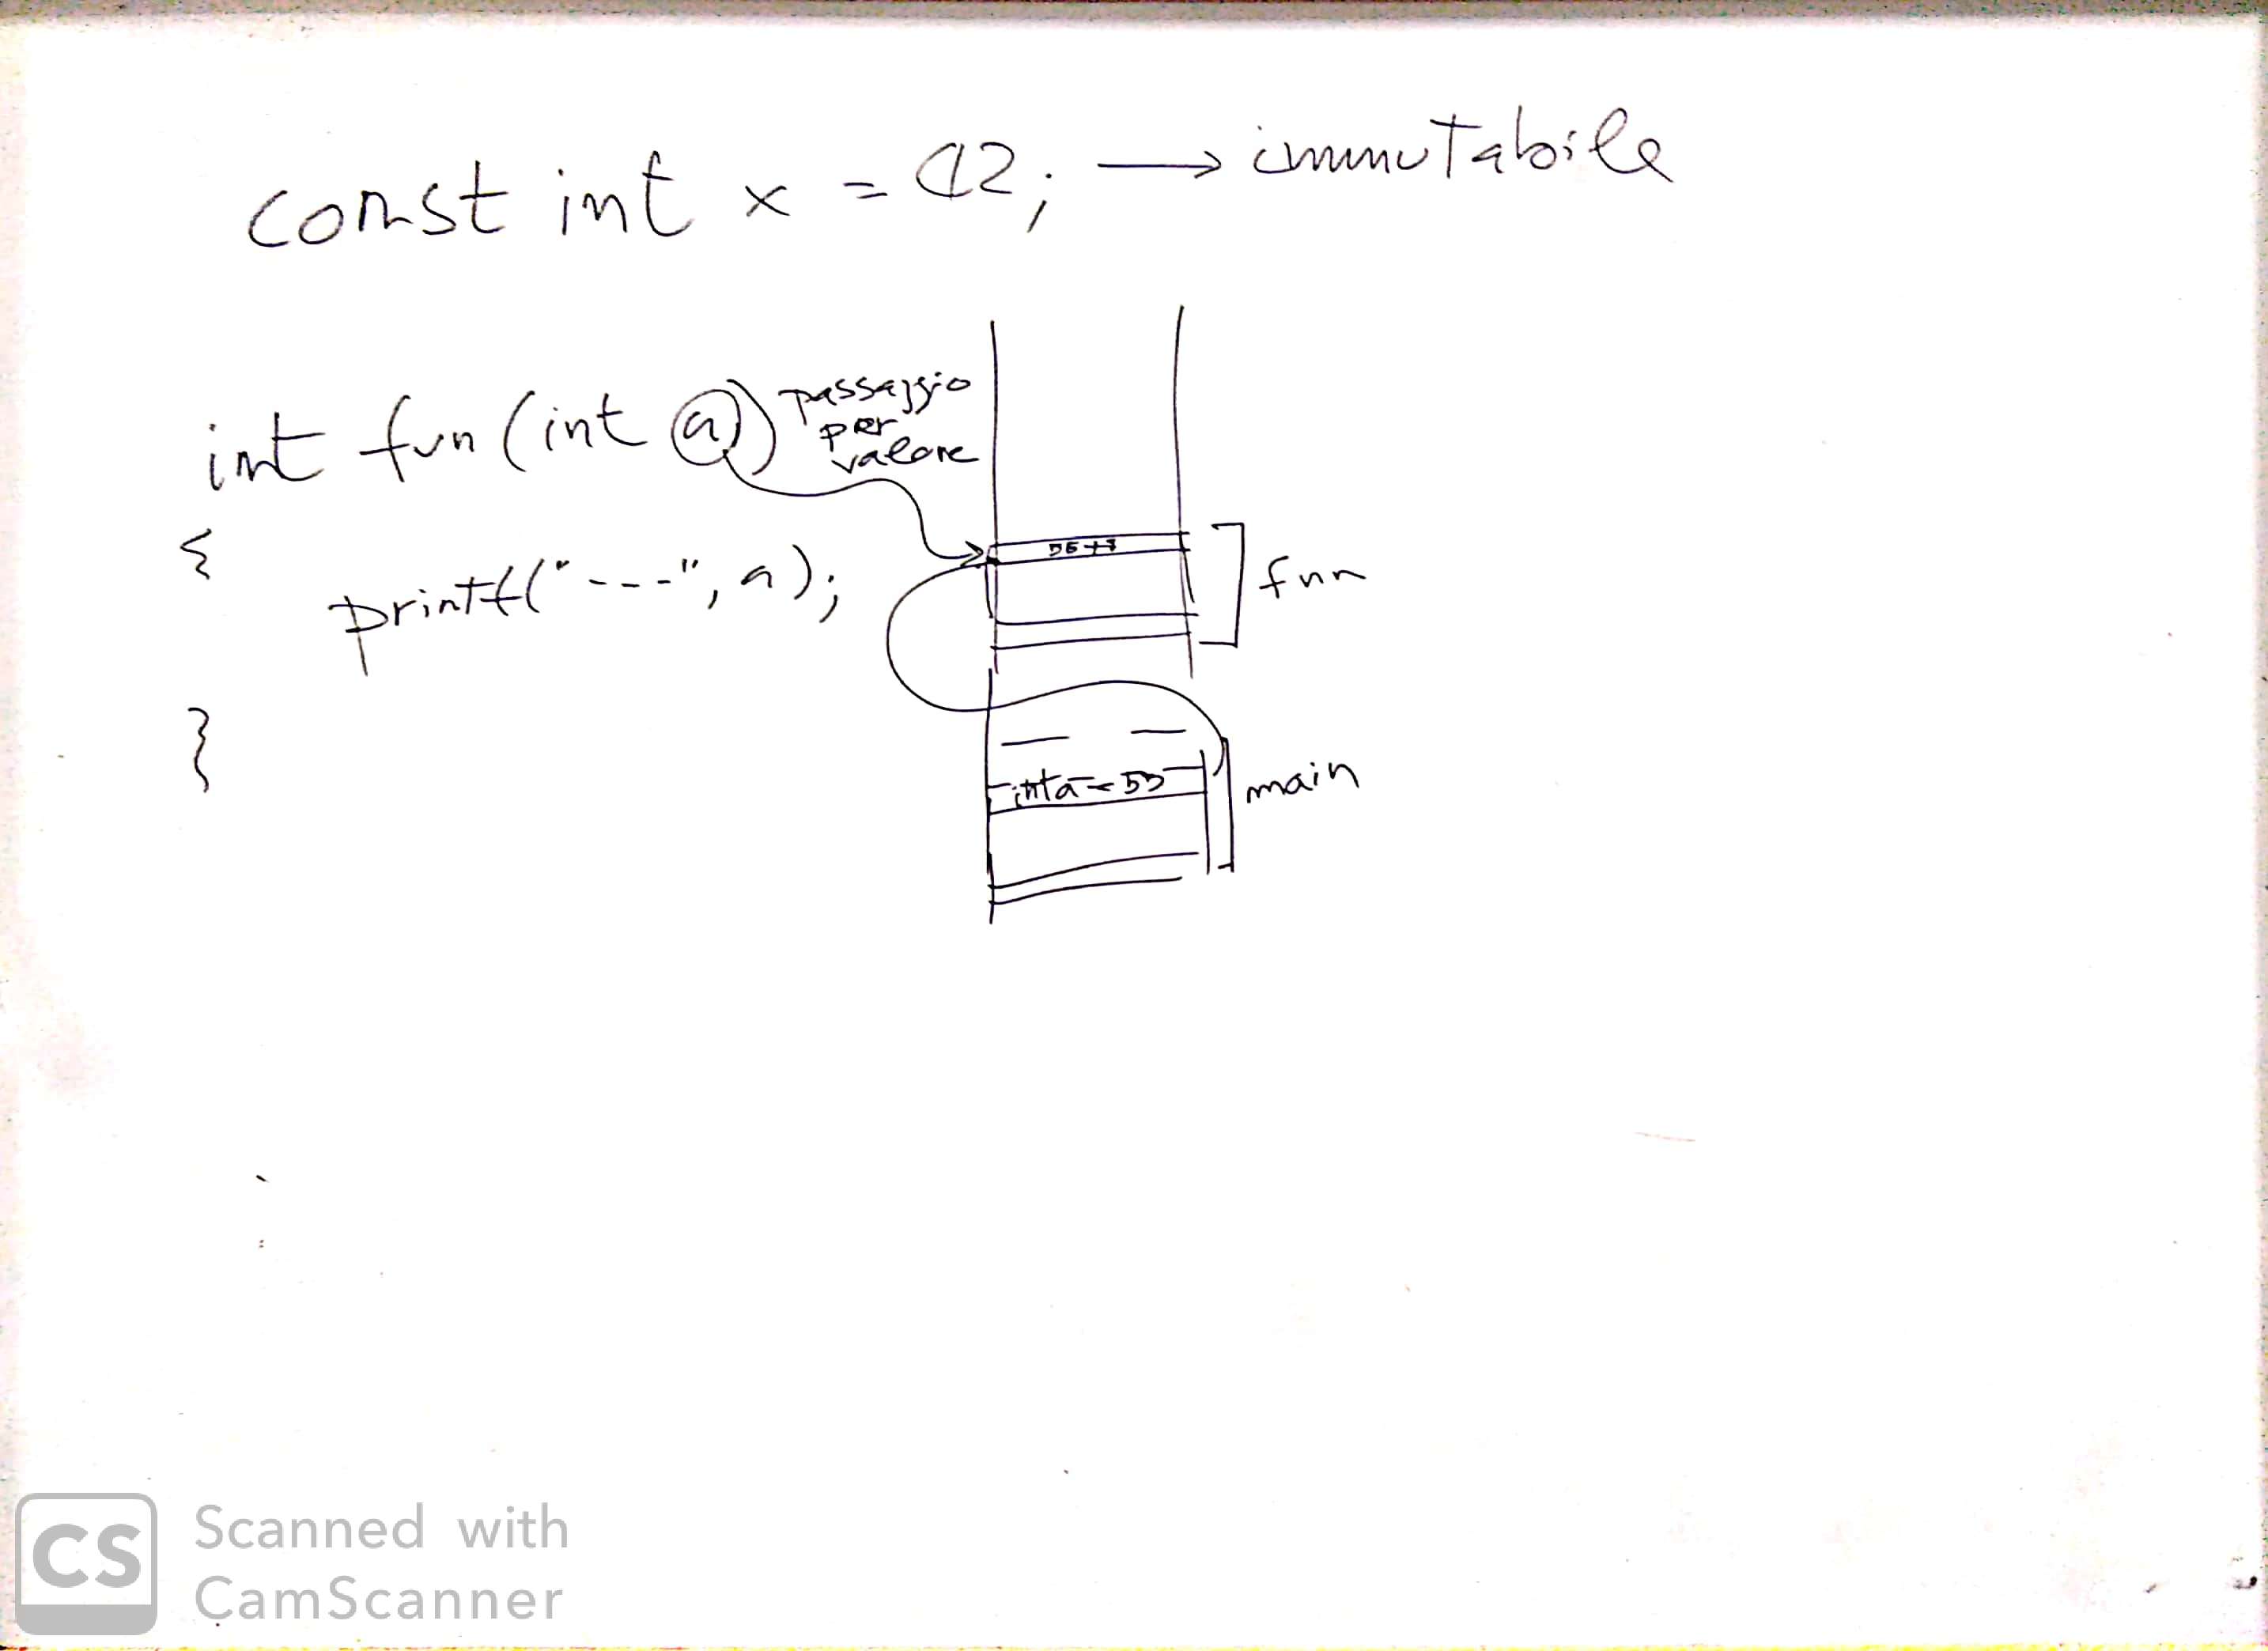 const int x = 42; → immutabile
int fun (int a) passaggio
per
valore
{
printf("---", a);
fun
}
int a = 55
main
CS Scanned with
CamScanner